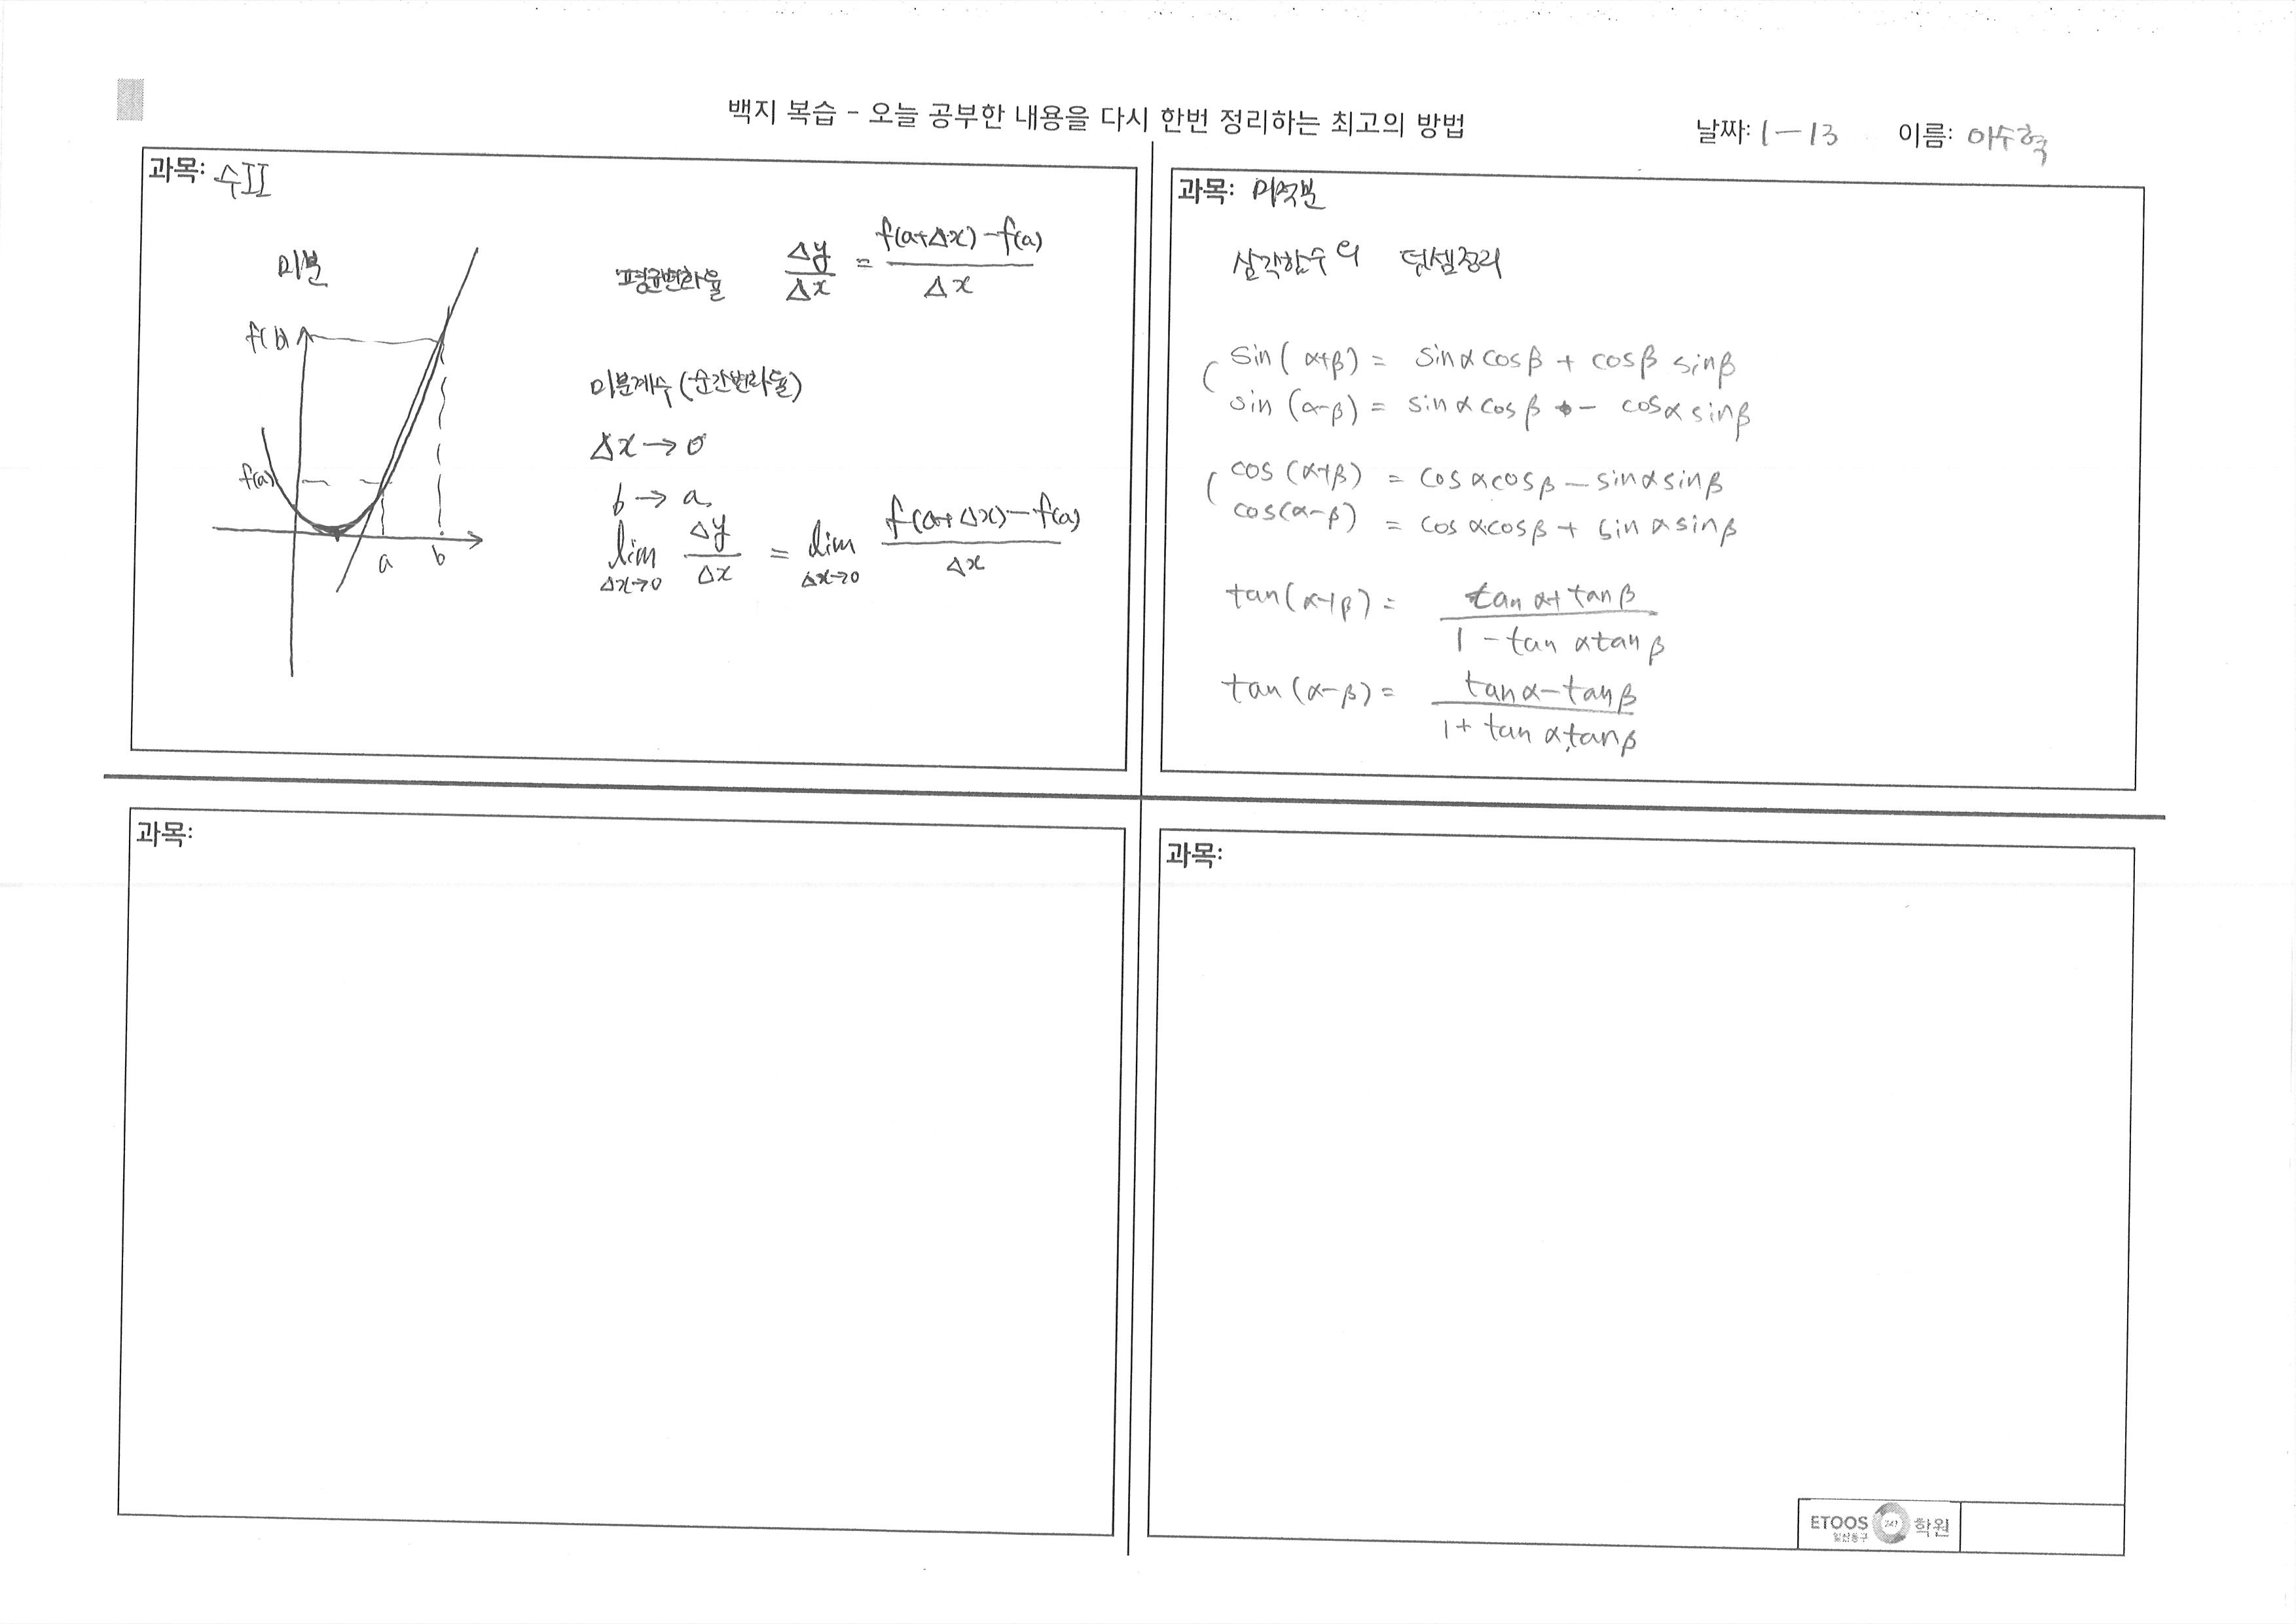 백지 복습 - 오늘 공부한 내용을 다시 한번 정리하는 최고의 방법
날짜: 1-13 이름: 이수혁
과목: 수II
미분
f(b)
f(a)
a b
평균변화율 Δy/Δx = (f(a+Δx)-f(a))/Δx
미분계수 (순간변화율)
Δx→0
b→a
lim Δx→0 Δy/Δx = lim Δx→0 (f(a+Δx)-f(a))/Δx
과목: 미적분
삼각함수의 덧셈정리
sin(α+β) = sinαcosβ + cosβ sinβ
sin(α-β) = sinαcosβ - cosαsinβ
cos(α+β) = cosαcosβ - sinαsinβ
cos(α-β) = cosαcosβ + sinαsinβ
tan(α+β) = (tanα+tanβ)/(1-tanαtanβ)
tan(α-β) = (tanα-tanβ)/(1+tanαtanβ)
과목:
과목:
ETOOS 247 학원
일산동구